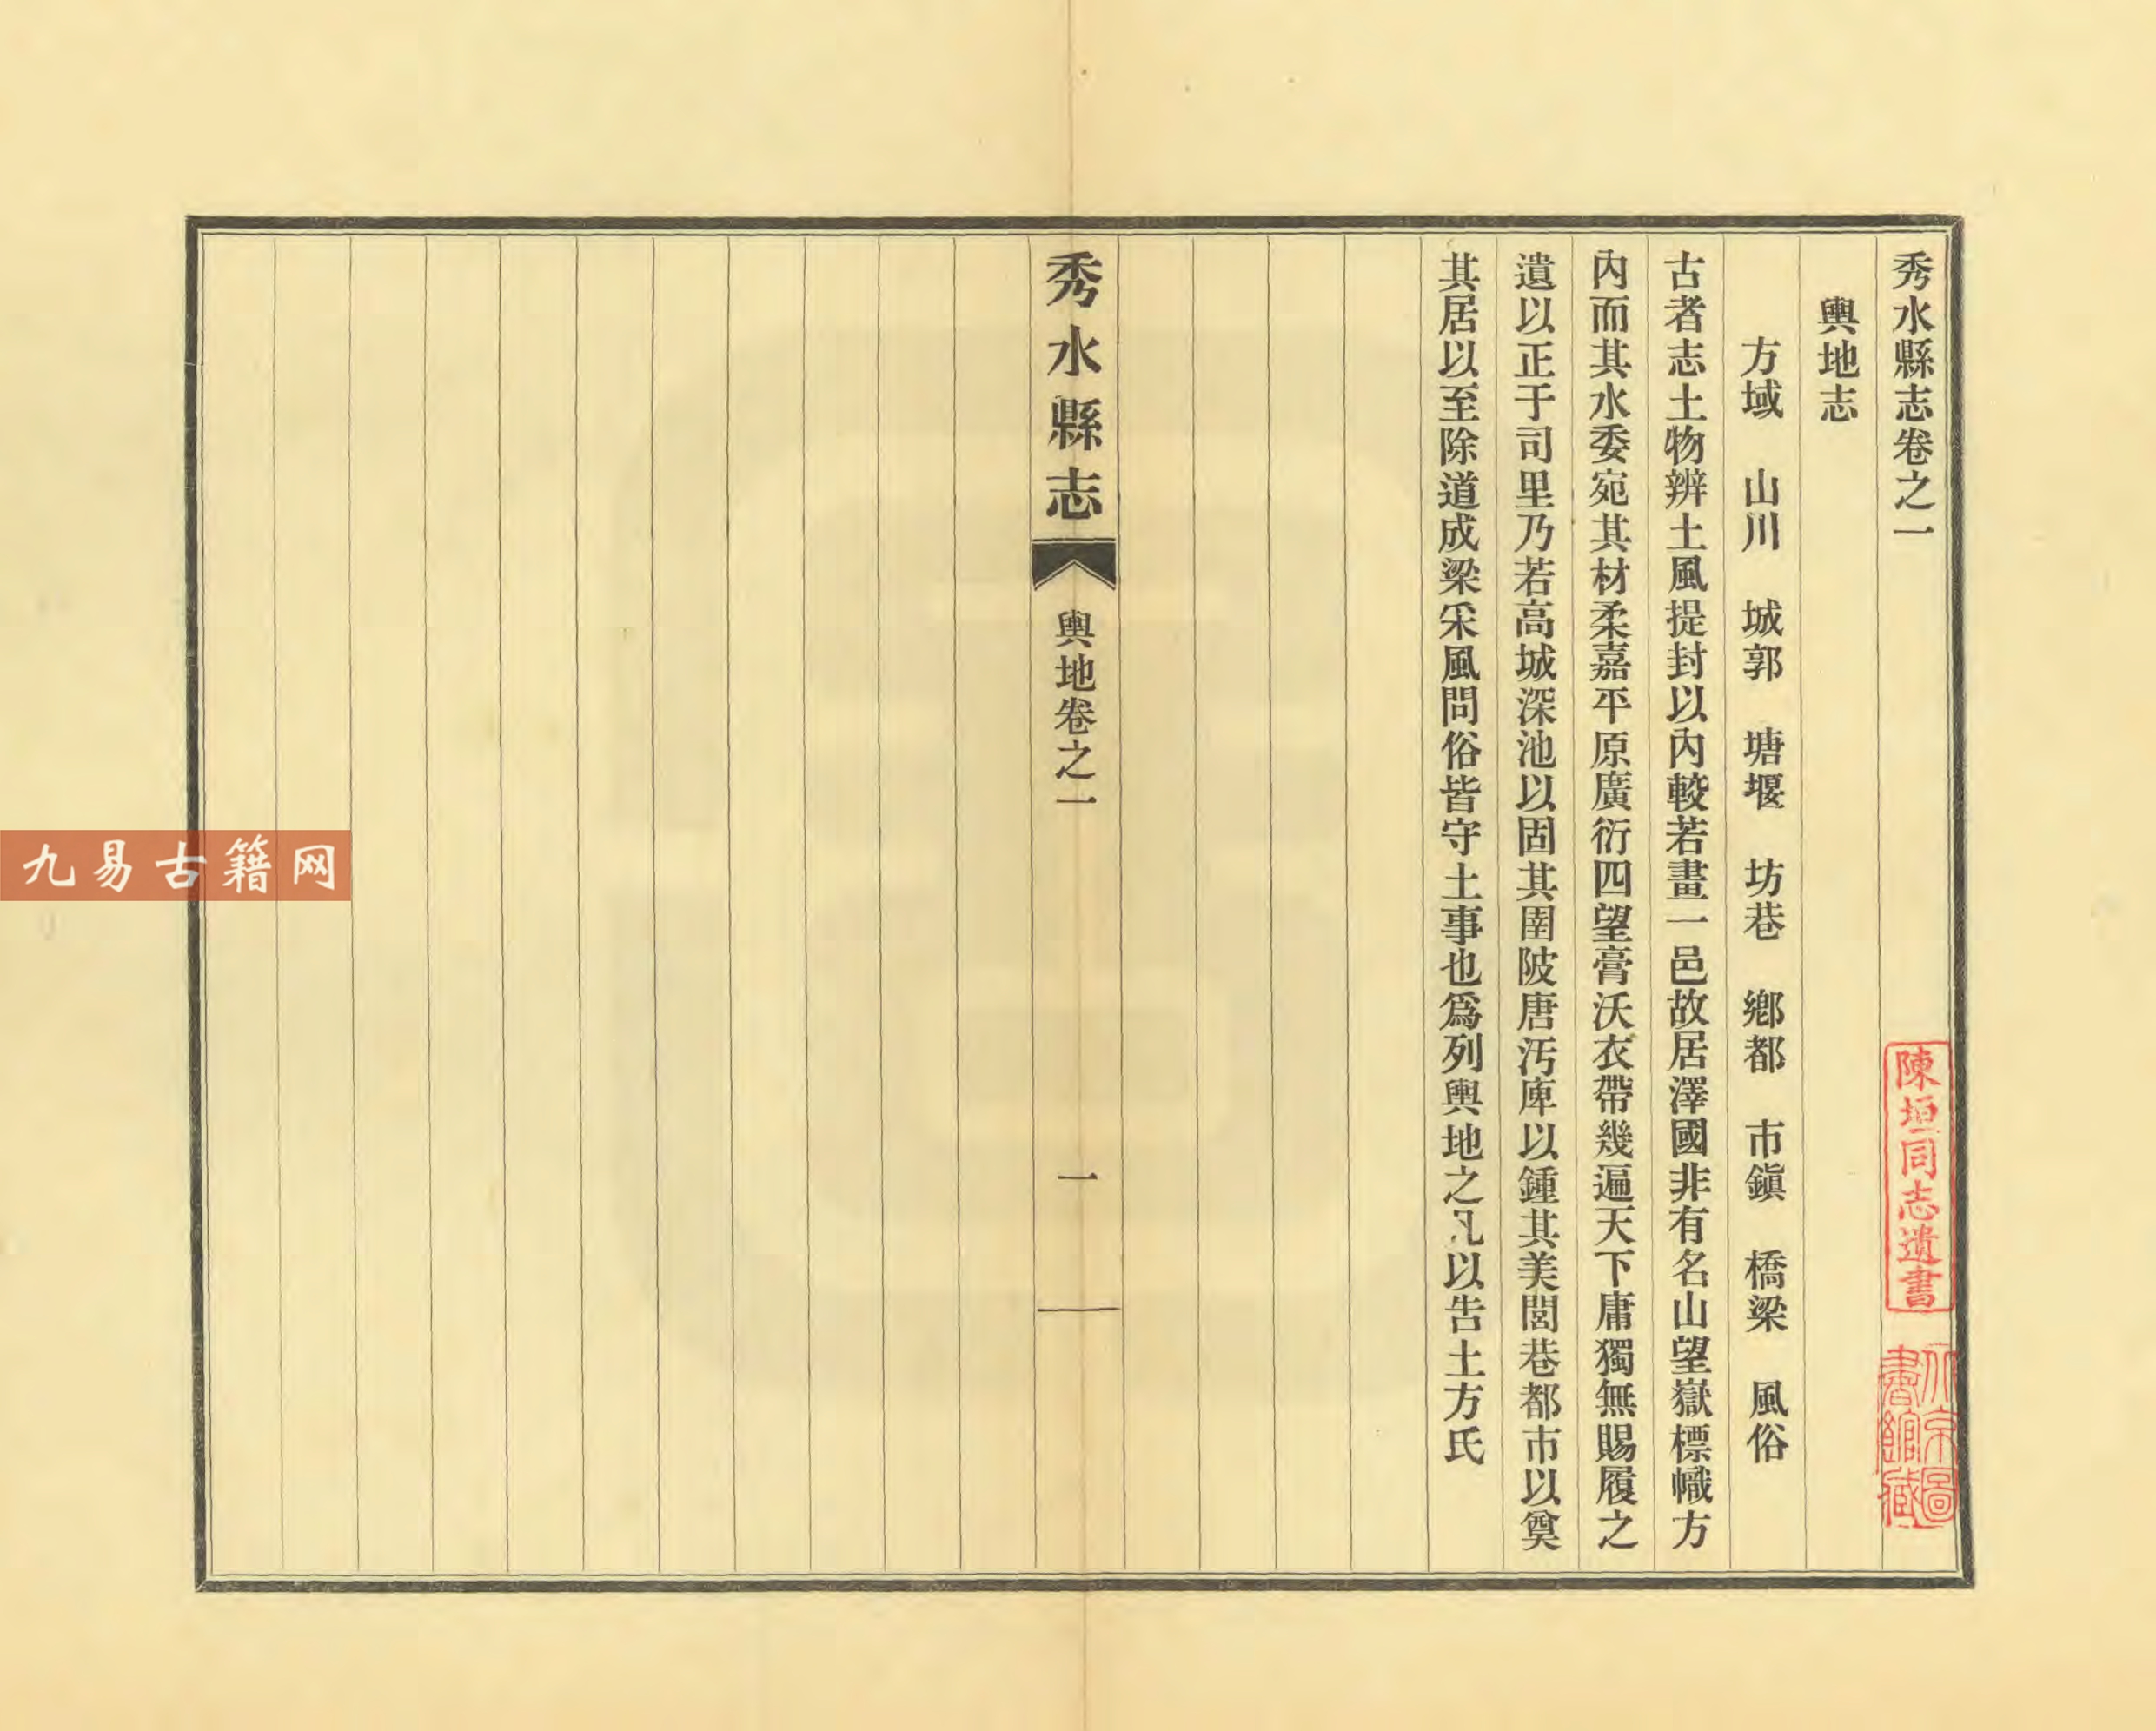 秀水縣志卷之一
輿地志
方域　山川　城郭　塘堰　坊巷　鄉都　市鎭　橋梁　風俗
古者志土物辨土風提封以內較若畫一邑故居澤國非有名山望嶽標幟方
內而其水委宛其材柔嘉平原廣衍四望膏沃衣帶幾遍天下庸獨無賜履之
遺以正于司里乃若高城深池以固其圉陂唐汚庳以鍾其美閭巷都市以奠
其居以至除道成梁采風問俗皆守土事也爲列輿地之凡以告土方氏
秀水縣志
輿地卷之一
一
陳垣同志遺書
北京圖
書館藏
九易古籍网